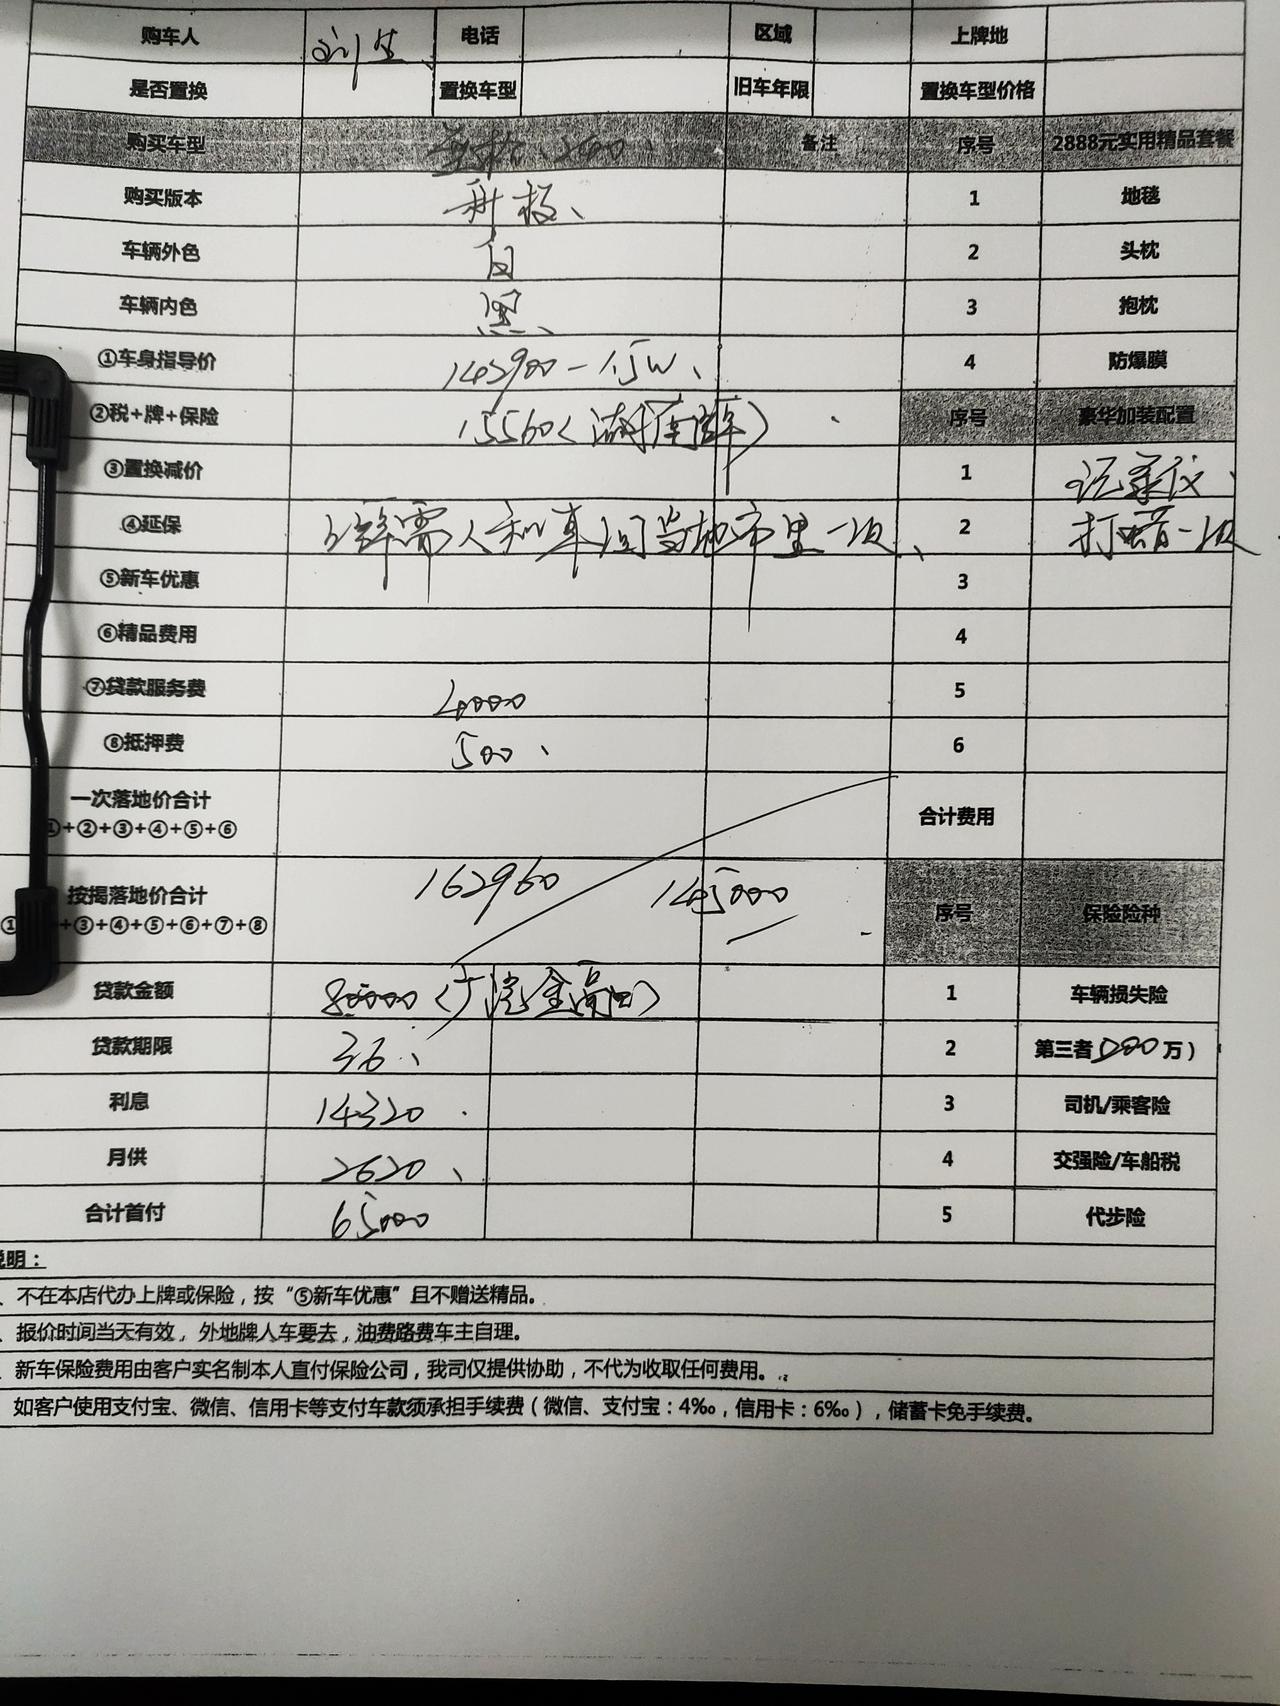 购车人 刘生 电话 区域 上牌地
是否置换 置换车型 旧车年限 置换车型价格
购买车型 260 备注 序号 2888元实用精品套餐
购买版本 科技 1 地毯
车辆外色 白 2 头枕
车辆内色 黑 3 抱枕
①车身指导价 142900-1.5W 4 防爆膜
②税+牌+保险 15560(湖南牌) 序号 豪华加装配置
③置换减价 1 记录仪
④延保 上牌需人和车回当地市里一次 2 打蜡一次
⑤新车优惠 3
⑥精品费用 4
⑦贷款服务费 4000 5
⑧抵押费 500 6
一次落地价合计 合计费用
①+②+③+④+⑤+⑥
按揭落地价合计 162960 145000 序号 保险险种
①+③+④+⑤+⑥+⑦+⑧
贷款金额 80000(广汽金融) 1 车辆损失险
贷款期限 36 2 第三者200万)
利息 14320 3 司机/乘客险
月供 2620 4 交强险/车船税
合计首付 65000 5 代步险
说明:
、不在本店代办上牌或保险,按“⑤新车优惠”且不赠送精品。
、报价时间当天有效,外地牌人车要去,油费路费车主自理。
、新车保险费用由客户实名制本人直付保险公司,我司仅提供协助,不代为收取任何费用。
如客户使用支付宝、微信、信用卡等支付车款须承担手续费(微信、支付宝:4‰,信用卡:6‰),储蓄卡免手续费。